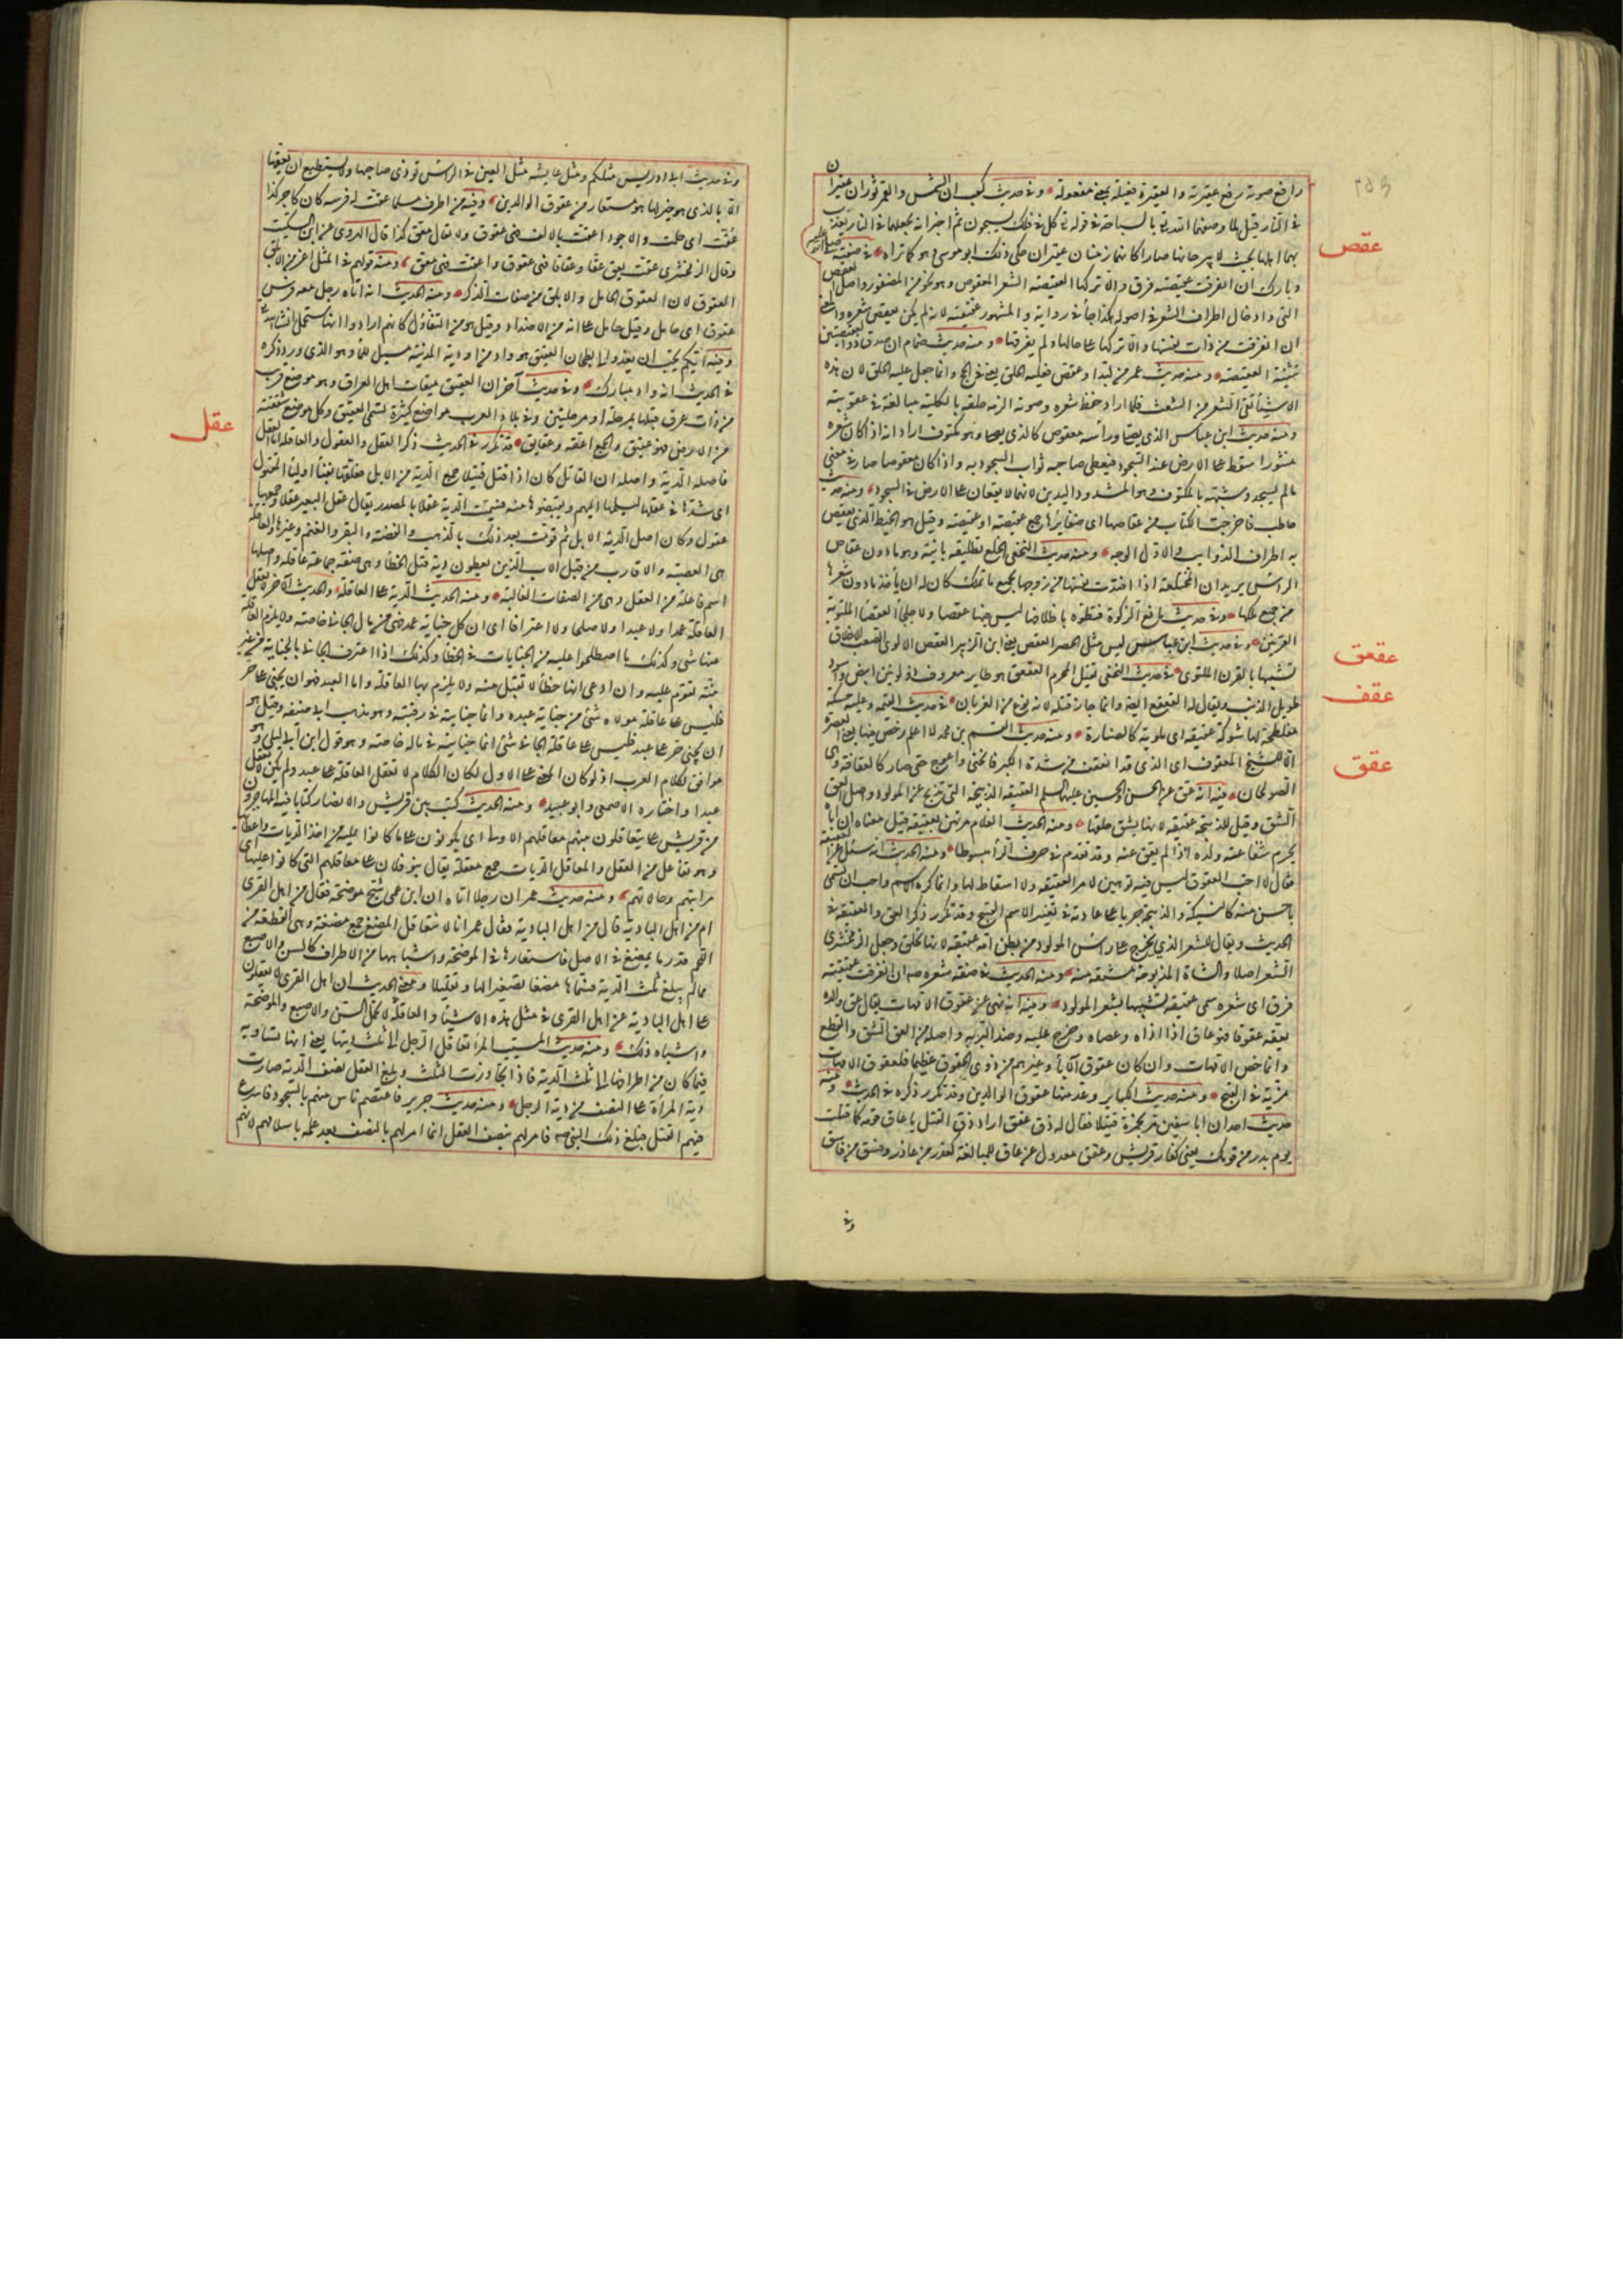 رافع صوته رفع عقيرته والعقيرة فعيلة بمعنى مفعولة وفى حديث كعب ان الشمس والقمر ثوران عقيران
فى النار قيل لما وصفهما الله تع بالسباحة فى قوله تع كل فى فلك يسبحون ثم اخبر انه يجعلهما فى النار يعذب
بهما اهلها بحيث لا يبرحانها صارا كانهما زمنان عقيران حكى ذلك ابو موسى وهو كما تراه فى صفته صلى الله عليه
عقص
وبارك ان انفرقت عقيصته فرق والا تركها العقيصة الشعر المعقوص وهو نحو من المضفور واصل العقص
اللى وادخال اطراف الشعر فى اصوله هكذا جاء فى رواية والمشهور عقيقته لانه لم يكن يعقص شعره والمعنى
ان انفرقت من ذات نفسها والا تركها على حالها ولم يفرقها ومنه حديث ضمام ان صدق ذو العقيصتين
تثنية العقيصة ومنه حديث عمر من لبد او عقص فعليه الحلق يعنى فى الحج وانما جعل عليه الحلق لان هذه
الاشياء تقى الشعر من الشعث فلما اراد حفظ شعره وصونه الزمه حلقه بالكلية مبالغة فى عقوبته
ومنه حديث ابن عباس الذى يصلى وراسه معقوص كالذى يصلى وهو مكتوف اراد انه اذا كان شعره
منثورا سقط على الارض عند السجود فيعطى صاحبه ثواب السجود به واذا كان معقوصا صار فى معنى
ما لم يسجد وشبهه بالمكتوف وهو المشدود اليدين لانهما لا يقعان على الارض فى السجود ومنه حديث
حاطب فاخرجت الكتاب من عقاصها اى ضفائرها جمع عقيصة او عقصة وقيل هو الخيط الذى يعقص
به اطراف الذوايب والاول الوجه ومنه حديث النخعى الخلع تطليقة باينة وهو ما دون عقاص
الراس يريد ان المختلعة اذا افتدت نفسها من زوجها بجميع ما تملك كان له ان ياخذ ما دون شعرها
من جميع ملكها وفى حديث مانع الزكوة فتطؤه باظلافها ليس فيها عقصاء ولا جلحاء العقصاء الملتوية
القرنين وفى حديث ابن عباس ليس مثل الحصر العقص يعنى ابن الزبير العقص الالوى الصعب الاخلاق
تشبيها بالقرن الملتوى فى حديث النخعى يقتل المحرم العقعق هو طاير معروف ذو لونين ابيض واسود
عقعق
طويل الذنب ويقال له القعقع ايضا وانما جاز قتله لانه نوع من الغربان فى حديث القيمة وعليه حسكة
عقف
مفلطحة لها شوكة عقيفة اى ملوية كالصنارة ومنه حديث القسم بن محمد لا اعلم رخص فيها يعنى العصرة
الا للشيخ المعقوف اى الذى قد انعقف من شدة الكبر فانحنى واعوج حتى صار كالعقافة وهى
الصولجان فيه انه عق عن الحسن والحسين عليهما السلم العقيقة الذبيحة التى تذبح عن المولود واصل العق
عقق
الشق وقيل للذبيحة عقيقة لانها يشق حلقها ومنه الحديث الغلام مرتهن بعقيقته قيل معناه ان اباه
يحرم شفاعة ولده اذا لم يعق عنه وقد تقدم فى حرف الراء مبسوطا ومنه الحديث انه سئل عن العقيقة
فقال لا احب العقوق ليس فيه توهين لامر العقيقة ولا اسقاط لها وانما كره الاسم واحب ان تسمى
باحسن منه كالنسيكة والذبيحة جريا على عادته فى تغيير الاسم القبيح وقد تكرر ذكر العق والعقيقة فى
الحديث ويقال للشعر الذى يخرج على راس المولود من بطن امه عقيقة لانها تحلق وجعل الزمخشرى
الشعر اصلا والشاة المذبوحة مشتقة منه ومنه الحديث فى صفة شعره صم ان انفرقت عقيقته
فرق اى شعره سمى عقيقة تشبيها بشعر المولود وفيه انه نهى عن عقوق الامهات يقال عق والده
يعقه عقوقا فهو عاق اذا اذاه وعصاه وخرج عليه وضد البر به واصله من العق الشق والقطع
وانما خص الامهات وان كان عقوق الآباء وغيرهم من ذوى الحقوق عظيما فلعقوق الامهات
مزية فى القبح ومنه حديث الكباير وعد منها عقوق الوالدين وقد تكرر ذكره فى الحديث ومنه
حديث احد ان ابا سفين مر بحمزة قتيلا فقال له ذق عقق اراد ذق القتل يا عاق قومه كما قتلت
يوم بدر من قومك يعنى كفار قريش وعقق معدول عن عاق للمبالغة كغدر من غادر وفسق من فاسق
وفى
وفى حديث ابى ادريس مثلكم ومثل عايشه مثل العين فى الراس تؤذى صاحبها ولا يستطيع ان يعقها
الا بالذى هو خير لها هو مستعار من عقوق الوالدين وفيه من اطرق مسلما فعقت له فرسه كان كاجر كذا
عقت اى حملت والاجود اعقت بالالف فهى عقوق ولا يقال معق كذا قال الهروى عن ابن السكيت
وقال الزمخشرى عقت تعق عققا وعقاقا فهى عقوق واعقت فهى معق ومنه قولهم فى المثل اعز من الابلق
العقوق لان العقوق الحامل والابلق من صفات الذكر ومنه الحديث انه اتاه رجل معه فرس
عقوق اى حامل وقيل حايل على انه من الاضداد وقيل هو من التفاؤل كانهم ارادوا انها ستحمل انشاء الله
وفيه ايكم يحب ان يغدو الى بطحان العقيق هو واد من اودية المدينة مسيل للماء وهو الذى ورد ذكره
فى الحديث انه واد مبارك وفى حديث آخر ان العقيق ميقات اهل العراق وهو موضع قريب
من ذات عرق قبلها بمرحلة او مرحلتين وفى بلاد العرب مواضع كثيرة تسمى العقيق وكل موضع شققته
من الارض فهو عقيق والجمع اعقة وعقايق قد تكرر فى الحديث ذكر العقل والعقول والعاقلة اما العقل
عقل
فاصله الدية واصله ان القاتل كان اذا قتل قتيلا جمع الدية من الابل فعقلها بفناء اولياء المقتول
اى شدها فى عقلها ليسلمها اليهم ويقبضوها منه فسميت الدية عقلا بالمصدر يقال عقل البعير عقلا وجمعها
عقول وكان اصل الدية الابل ثم قومت بعد ذلك بالذهب والفضة والبقر والغنم وغيرها والعاقلة
هى العصبة والاقارب من قبل الاب الذين يعطون دية قتيل الخطأ وهى صفة جماعة عاقلة واصلها
اسم فاعلة من العقل وهى من الصفات الغالبة ومنه الحديث الدية على العاقلة والحديث الآخر لا تعقل
العاقلة عمدا ولا عبدا ولا صلحا ولا اعترافا اى ان كل جناية عمد فهى من مال الجانى خاصة ولا يلزم العاقلة
منها شئ وكذلك ما اصطلحوا عليه من الجنايات فى الخطأ وكذلك اذا اعترف الجانى بالجناية من غير
بينة تقوم عليه وان ادعى انها خطأ لا تقبل منه ولا يلزم بها العاقلة واما العبد فهو ان يجنى على حر
فليس على عاقلة مولاه شئ من جناية عبده وانما جنايته فى رقبته وهو مذهب ابى حنيفه وقيل هو
ان يجنى حر على عبد فليس على عاقلة الجانى شئ انما جنايته فى ماله خاصة وهو قول ابن ابى ليلى وهو
موافق لكلام العرب اذ لو كان المعنى على الاول لكان الكلام لا تعقل العاقلة على عبد ولم يكن لا تعقل
عبدا واختاره الاصمعى وابو عبيد ومنه الحديث كتب بين قريش والانصار كتابا فيه المهاجرون
من قريش على يتعاقلون بينهم معاقلهم الاولى اى يكونون على ما كانوا عليه من اخذ الديات واعطائها
وهو تفاعل من العقل والمعاقل الديات جمع معقلة يقال بنو فلان على معاقلهم التى كانوا عليها اى
مراتبهم وحالاتهم ومنه حديث عمر ان رجلا اتاه ان ابن عمى شج موضحة فقال من اهل القرى
ام من اهل البادية قال من اهل البادية فقال عمر انا لا نتعاقل المضغ جمع مضغة وهى القطعة من
اللحم قدر ما يمضغ فى الاصل فاستعارها فى الموضحة واشباهها من الاطراف كالسن والاصبع
مما لم يبلغ ثلث الدية فسماها مضغا تصغيرا لها وتقليلا ومعنى الحديث ان اهل القرى لا يعقلون
على اهل البادية عن اهل القرى فى مثل هذه الاشياء والعاقلة لا تحمل السن والاصبع والموضحة
واشباه ذلك ومنه حديث ابن المسيب المرأة تعاقل الرجل الى ثلث ديتها يعنى انها تساويه
فيما كان من اطرافها الى ثلث الدية فاذا تجاوزت الثلث وبلغ العقل نصف الدية صارت
دية المرأة على النصف من دية الرجل ومنه حديث جرير فاعتصم ناس منهم بالسجود فاسرع
فيهم القتل فبلغ ذلك النبى صم فامر لهم بنصف العقل انما امر لهم بالنصف بعد علمه باسلامهم لانهم